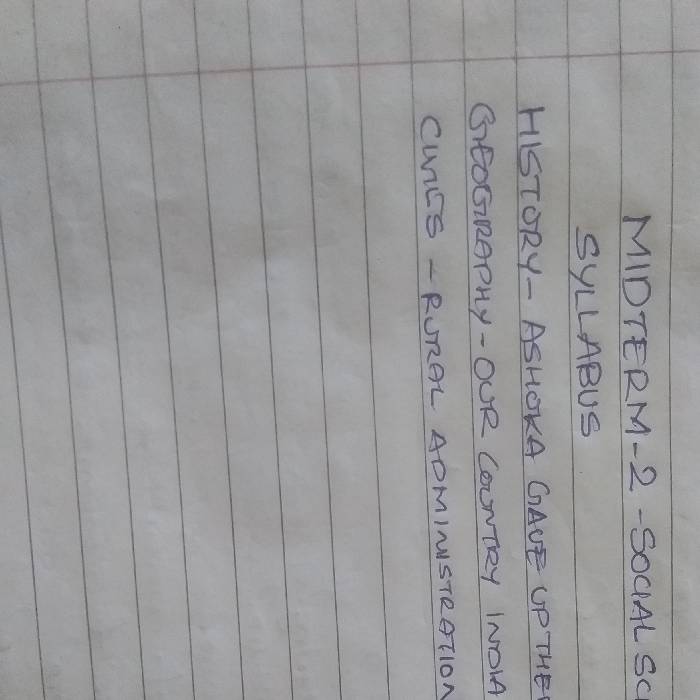 MIDTERM-2-SOCIAL SC
SYLLABUS
HISTORY- ASHOKA GAVE UP THE
GEOGRAPHY-OUR COUNTRY INDIA
CIVICS - RURAL ADMINISTRATION